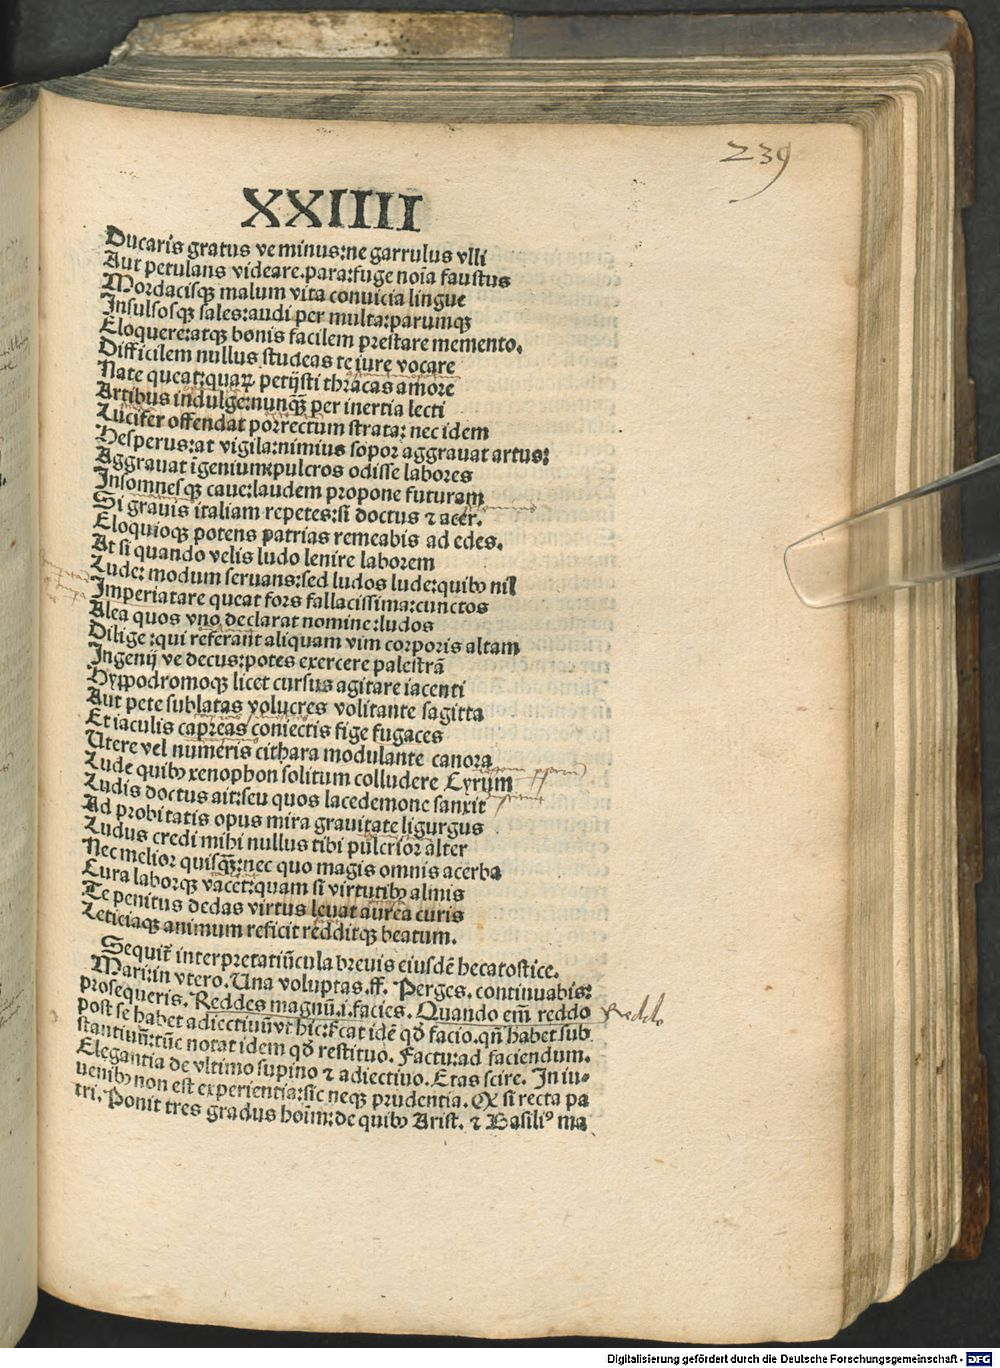 239
XXIIII
Ducaris gratus ve minus: ne garrulus vlli
Aut petulans videare. para: fuge noīa faustus
Mordacisqꝫ malum vita conuicia lingue
Insulsosqꝫ sales: audi per multa: parumqꝫ
Eloquere: atqꝫ bonis facilem prestare memento.
Difficilem nullus studeas te iure vocare
Nate queat: quaꝝ petijsti thracas amore
Artibus indulge: nunqꝫ̄ per inertia lecti
Lucifer offendat porrectum strata: nec idem
Hesperus: at vigila: nimius sopor aggrauat artus:
Aggrauat īgenium: pulcros odisse labores
Insomnesqꝫ caue: laudem propone futuram
Si grauis italiam repetes: si doctus ⁊ acer.
Eloquioqꝫ potens patrias remeabis ad edes.
At si quando velis ludo lenire laborem
Lude: modum seruans: sed ludos lude: quibꝰ nil
Imperiatare queat fors fallacissima: cunctos
Alea quos vno declarat nomine: ludos
Dilige: qui referant aliquam vim corporis altam
Ingenij ve decus: potes exercere palestrā
Hyppodromoqꝫ licet cursus agitare iacenti
Aut pete sublatas volucres volitante sagitta
Et iaculis capreas coniectis fige fugaces
Utere vel numeris cithara modulante canora
Lude quibꝰ xenophon solitum colludere Cyrum
Ludis doctus ait: seu quos lacedemone sanxit
Ad probitatis opus mira grauitate ligurgus
Ludus credi mihi nullus tibi pulcrior alter
Nec melior quisqꝫ̄: nec quo magis omnis acerba
Cura laborqꝫ vacet: quam si virtutibꝰ almis
Te penitus dedas virtus leuat aurea curis
Leticiaqꝫ animum reficit redditqꝫ beatum.
Sequit̄ interpretatiūcula breuis eiusdē hecatostice.
Mari: in vtero. Una voluptas. ff. Perges. continuabis:
prosequeris. Reddes magnū. i. facies. Quando em̄ reddo
Reddo
post se habet adiectiuū vt hic: f̄cat idē qđ facio. qn̄ habet sub
stantiuū: tūc notat idem qđ restituo. Factu: ad faciendum.
Elegantia de vltimo supino ⁊ adiectiuo. Etas scire. In iu⸗
uenibꝰ non est experientia: sic neqꝫ prudentia. Qꝫ si recta pa
tri. Ponit tres gradus hoīm: de quibꝰ Arist. ⁊ Basiliꝰ ma
Digitalisierung gefördert durch die Deutsche Forschungsgemeinschaft - DFG